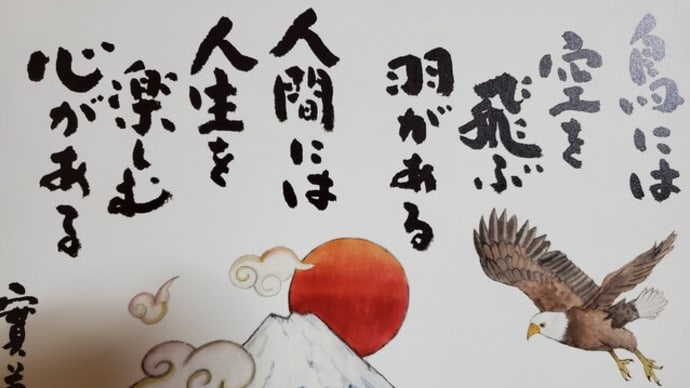 鳥には
空を
飛ぶ
羽がある
人間には
人生を
楽しむ
心がある